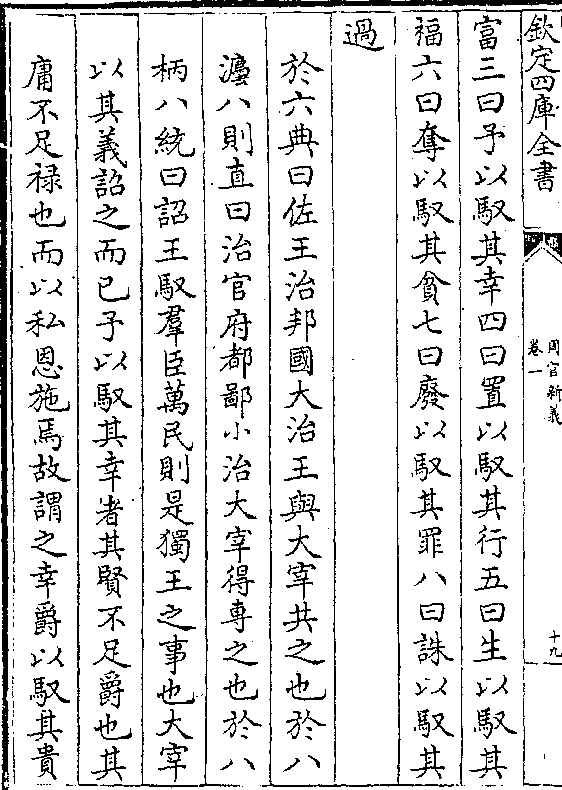 欽定四庫全書
周官新義
卷一
十九
富三曰予以馭其幸四曰置以馭其行五曰生以馭其
福六曰奪以馭其貧七曰廢以馭其罪八曰誅以馭其
過
於六典曰佐王治邦國大治王與大宰共之也於八
灋八則直曰治官府都鄙小治大宰得專之也於八
柄八統曰詔王馭羣臣萬民則是獨王之事也大宰
以其義詔之而已予以馭其幸者其賢不足爵也其
庸不足祿也而以私恩施焉故謂之幸爵以馭其貴